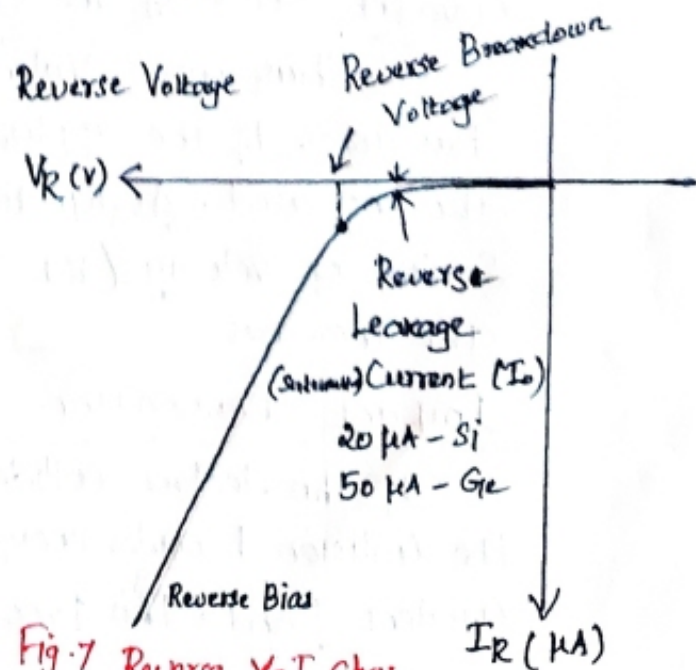 Reverse Voltage
Reverse Breakdown
Voltage
VR (V)
Reverse
Leakage
Current (Io)
20 μA - Si
50 μA - Ge
Reverse Bias
IR (μA)
Fig.7 Reverse V-I Char